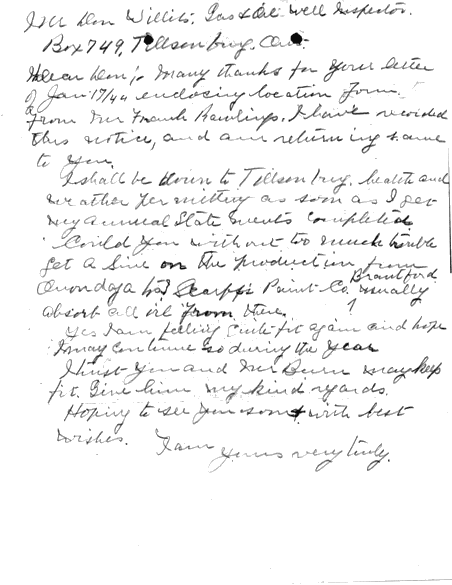 Mr Don Willits, Gas & Oil Well Inspector.
Box 749, Tillsonburg, Ont.
Dear Don; Many thanks for your letter
of Jan 17/44 enclosing location form
from Mr Frank Rawlings. I have recorded
this notice, and am returning same
to you.
I shall be down to Tillsonburg, health and
weather permitting as soon as I get
my annual Statements completed
Could you without too much trouble
get a line on the production from
Onondaga Scarfe Paint Co. Brantford usually
absorb all oil from there. ?
Yes I am feeling quite fit again and hope
I may continue so during the year
I trust you and Mr Burn may keep
fit. Give him my kind regards.
Hoping to see you soon with best
wishes. I am
yours very truly.